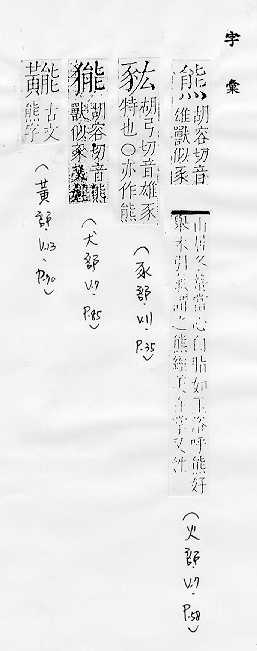 字彙
熊 胡容切音
雄獸似豕
山居冬蟄當心白脂如玉俗呼熊好
舉木引氣謂之熊經美在掌又姓
(火部 V.7 P.58)
胡弓切音雄豕
特也〇亦作熊
(豕部 V.11 P.35)
胡容切音熊
獸似豕
(犬部 V.7 P.85)
古文
熊字
(黃部 V.13 P.90)